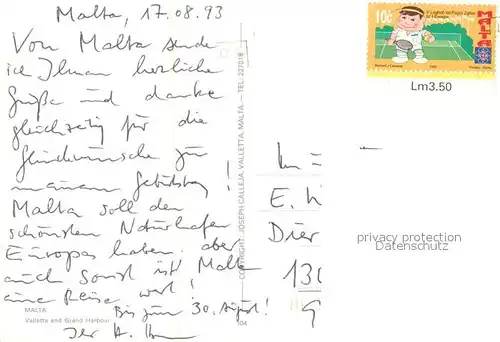 Malta, 17.08.93
Von Malta sende
ich Ihnen herzliche
Grüße und danke
gleichzeitig für die
Glückwünsche zu
meinem Geburtstag!
Malta soll den
schönsten Naturhafen
Europas haben. aber
auch sonst ist Malta
eine Reise wert!
Bis zum 30. August!
Ihr H.
MALTA
Valletta and Grand Harbour
104
COPYRIGHT: JOSEPH CALLEJA, VALLETTA, MALTA. — TEL: 227018
10c
MALTA
Lm3.50
E.
Dier
130
privacy protection
Datenschutz